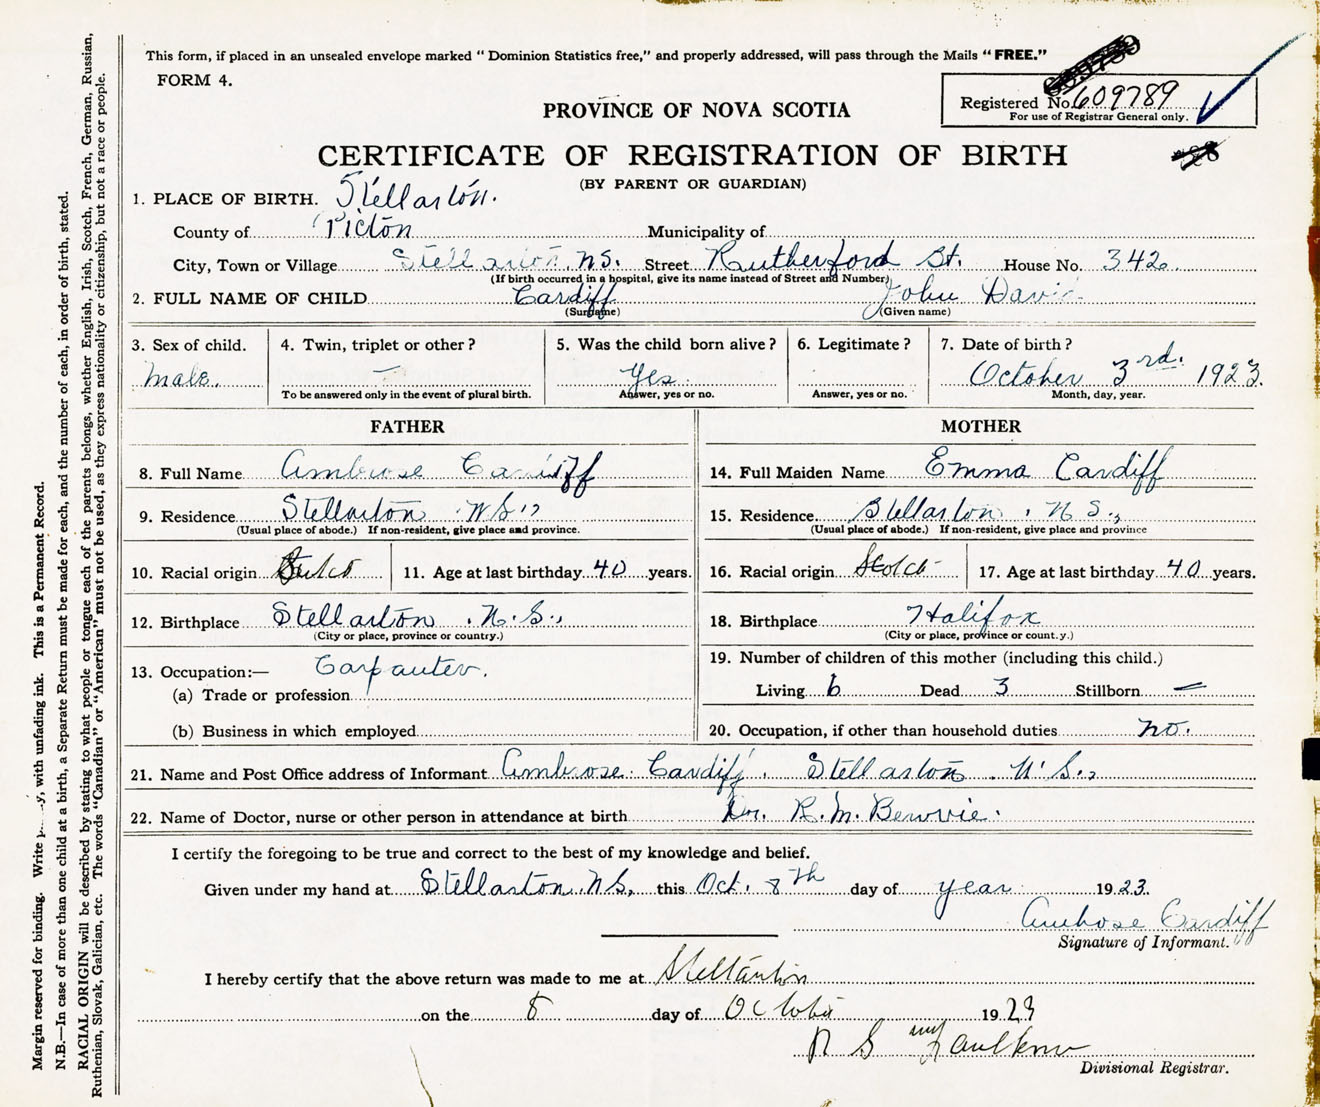 This form, if placed in an unsealed envelope marked "Dominion Statistics free," and properly addressed, will pass through the Mails "FREE."
FORM 4.
Registered No. 609789
For use of Registrar General only.
PROVINCE OF NOVA SCOTIA
CERTIFICATE OF REGISTRATION OF BIRTH
(BY PARENT OR GUARDIAN)
1. PLACE OF BIRTH. Stellarton.
County of Picton Municipality of
City, Town or Village Stellarton N.S. Street Rutherford St. House No. 342
(If birth occurred in a hospital, give its name instead of Street and Number)
2. FULL NAME OF CHILD Cardiff John David
(Surname) (Given name)
3. Sex of child. 4. Twin, triplet or other? 5. Was the child born alive? 6. Legitimate? 7. Date of birth?
Male. — Yes October 3rd. 1923.
To be answered only in the event of plural birth. Answer, yes or no. Answer, yes or no. Month, day, year.
FATHER MOTHER
8. Full Name Ambrose Cardiff 14. Full Maiden Name Emma Cardiff
9. Residence Stellarton N.S. 15. Residence Stellarton, N.S.,
(Usual place of abode.) If non-resident, give place and province. (Usual place of abode.) If non-resident, give place and province
10. Racial origin 11. Age at last birthday 40 years. 16. Racial origin Scotch 17. Age at last birthday 40 years.
12. Birthplace Stellarton, N.S., 18. Birthplace Halifax
(City or place, province or country.) (City or place, province or count.y.)
13. Occupation:— Carpauter. 19. Number of children of this mother (including this child.)
(a) Trade or profession Living 6 Dead 3 Stillborn —
(b) Business in which employed 20. Occupation, if other than household duties no.
21. Name and Post Office address of Informant Ambrose Cardiff. Stellarton N.S.,
22. Name of Doctor, nurse or other person in attendance at birth Dr. R. M. Benvie.
I certify the foregoing to be true and correct to the best of my knowledge and belief.
Given under my hand at Stellarton N.S. this Oct. 8th day of year 1923.
Ambrose Cardiff
Signature of Informant.
I hereby certify that the above return was made to me at Stellarton
on the 8 day of October 1923
Divisional Registrar.
Margin reserved for binding. Write with unfading ink. This is a Permanent Record.
N.B.—In case of more than one child at a birth, a Separate Return must be made for each, and the number of each, in order of birth, stated.
RACIAL ORIGIN will be described by stating to what people or tongue each of the parents belongs, whether English, Irish, Scotch, French, German, Russian,
Ruthenian, Slovak, Galician, etc. The words "Canadian" or "American" must not be used, as they express nationality or citizenship, but not a race or people.